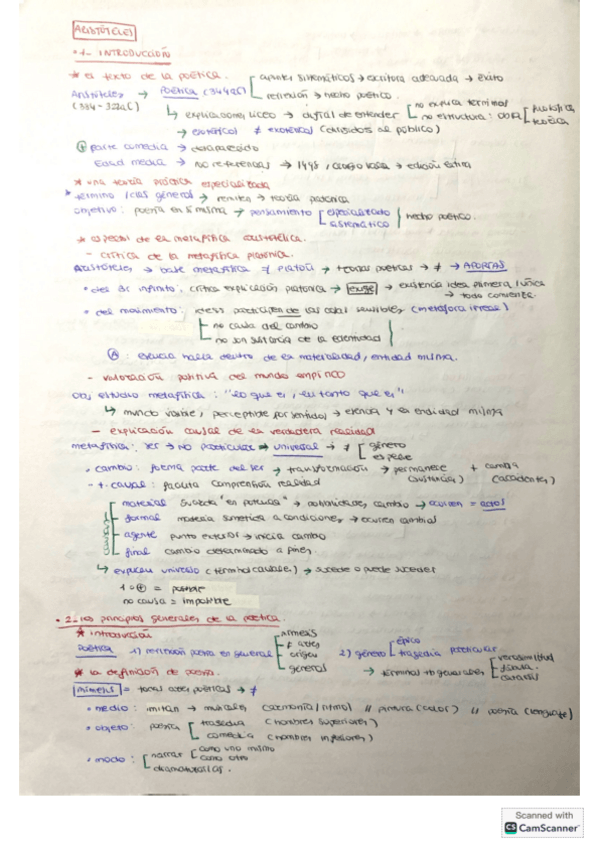 ARISTÓTELES
• 1- INTRODUCCIÓN
* el texto de la poética. apuntes sistemáticos → escritura adecuada → éxito
Aristóteles → Poética (344aC) reflexión → hecho poético.
(384-322aC) ↳ explicaciones liceo → difícil de entender no explica términos
no estructura:
→ esotérico ≠ exotérico (dirigidos al público)
⊕ parte comedia → desaparecido
Edad media → no referencias → 1498, → edición latina
* una teoría práctica especializada
* término / clas general → remiten → teoría platónica
objetivo: poesía en sí misma → pensamiento especializado sistemático } hecho poético.
* aspectos de la metafísica aristotélica.
- crítica de la metafísica platónica.
Aristóteles → base metafísica ≠ Platón → teorías poéticas → ≠ → APORÍAS
• del 3r infinito: crítica explicación platónica → exige → existencia idea primera/única
→ todo converge.
• del movimiento: ideas participen de las cosas sensibles (metáfora irreal)
no causa del cambio
no son sustancia de la
Ⓐ: esencia hacia dentro de la materialidad, entidad misma.
- valoración positiva del mundo empírico
obj. estudio metafísica: "lo que es, en tanto que es"
↳ mundo visible, perceptible por sentidos → esencia y la entidad misma
- explicación causal de la verdadera realidad
metafísica: ser → NO particular → universal → ≠ género
especie
• cambio: forma parte del ser → transformación → permanece + cambia
(sustancia) (accidentes)
- t. causal: facilita comprensión realidad
material sustrato "en potencia" → potencialidades, cambio → ocurren = actos
formal materia sometida a condiciones → ocurren cambios
agente punto exterior → inicia cambio
final cambio determinado a fines
↳ explican universo (términos causales) → sucede o puede suceder
1 o ⊕ = posible
no causa = imposible
• 2- los principios generales de la poética.
* introducción
Poética 1) reflexión poesía en general mímesis
≠ artes
origen
géneros
2) género épico
tragedia particular
→ términos verosimilitud
causal
* la definición de poesía.
mímesis = todas artes poéticas → ≠
• medio: imitan → musicales (armonía/ritmo) // pintura (color) // poesía (lenguaje)
• objeto: poesía tragedia (hombres superiores)
comedia (hombres inferiores)
• modo: narrar como uno mismo
como otro
dramatizarlas.
Scanned with
CS CamScanner